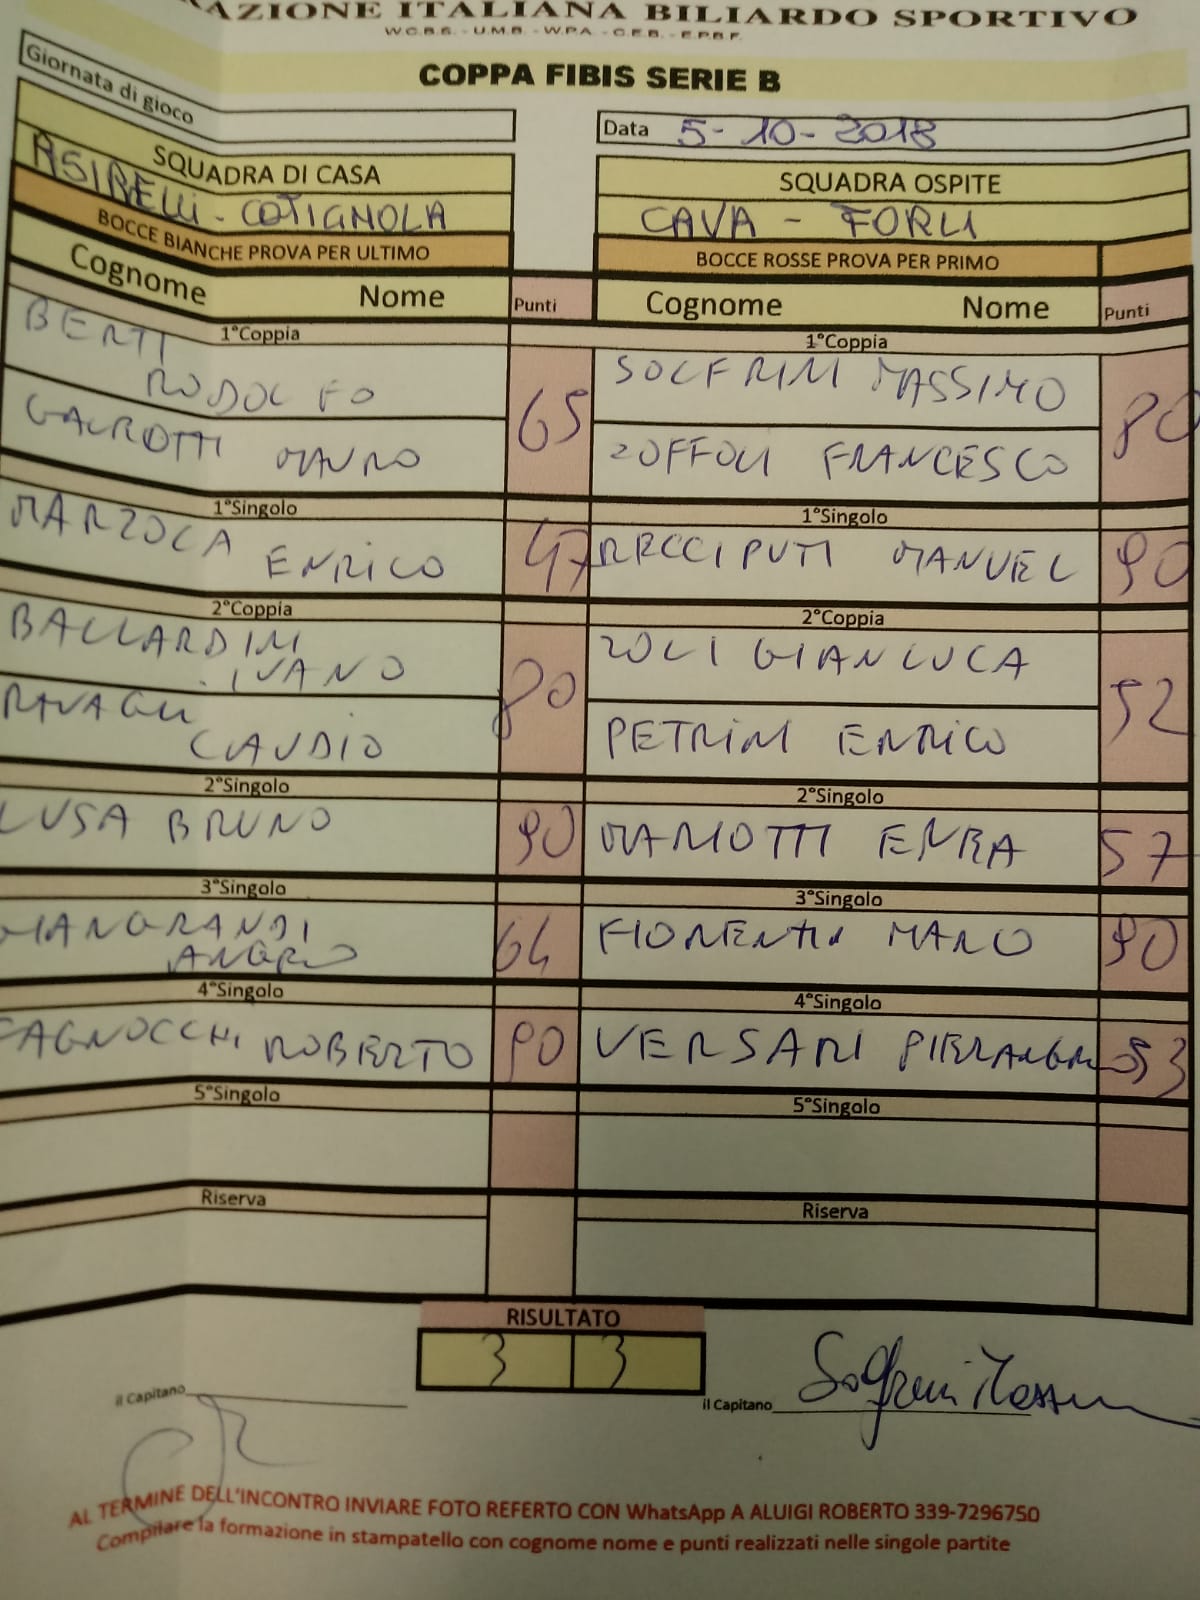 AZIONE ITALIANA BILIARDO SPORTIVO
W.C.B.S. - U.M.B. - W.P.A. - C.E.B. - E.P.B.F.
COPPA FIBIS SERIE B
Giornata di gioco
Data 5-10-2018
SQUADRA DI CASA SQUADRA OSPITE
ASIRELLI - COTIGNOLA CAVA - FORLI
BOCCE BIANCHE PROVA PER ULTIMO BOCCE ROSSE PROVA PER PRIMO
Cognome Nome Punti Cognome Nome Punti
1°Coppia 1°Coppia
BERTI RODOLFO 65 SOLFRINI MASSIMO 80
GALROTTI MAURO ZOFFOLI FRANCESCO
1°Singolo 1°Singolo
MARZOLA ENRICO 47 RECCIPUTI MANUEL 90
2°Coppia 2°Coppia
BALLARDINI IVANO 80 ZOLI GIANLUCA 52
RAVAGLI CLAUDIO PETRINI ENRICO
2°Singolo 2°Singolo
LUSA BRUNO 90 MARIOTTI ENEA 57
3°Singolo 3°Singolo
ANGELO 64 FIORENTINI MARIO 90
4°Singolo 4°Singolo
FAGNOCCHI ROBERTO 90 VERSARI PIERANGELO 53
5°Singolo 5°Singolo
Riserva Riserva
RISULTATO
3 3
il Capitano il Capitano Solfrini Massimo
AL TERMINE DELL'INCONTRO INVIARE FOTO REFERTO CON WhatsApp A ALUIGI ROBERTO 339-7296750
Compilare la formazione in stampatello con cognome nome e punti realizzati nelle singole partite